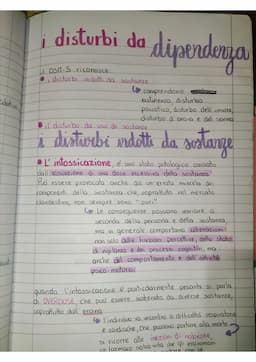 i disturbi da dipendenza
il DSM-5 riconosce
• i disturbi indotti da sostanze
↳ comprendono
astinenza, disturbo
psicotico, disturbo dell'umore,
disturbo d'ansia e del sonno
• il disturbo da uso di sostanze
i disturbi indotti da sostanze
• L'intossicazione, è uno stato patologico causato
dall'assunzione di una dose eccessiva della sostanza.
Può essere provocata anche da un'errata miscela dei
componenti della sostanza che, soprattutto nel mercato
clandestino, non sempre sono "puri".
↳ Le conseguenze possono variare a
seconda della persona e della sostanza,
ma in generale comportano alterazioni
non solo delle funzioni percettive, dello stato
di vigilanza e dei processi cognitivi, ma
anche del comportamento e dell'attività
psico-motoria.
quando l'intossicazione è particolarmente pesante si parla
di OVERDOSE, che può essere scatenata da diverse sostanze,
soprattutto dall'eroina
↳ l'individuo va incontro a difficoltà respiratorie
e cardiache, che possono portare alla morte.
si ricorre alle iniezioni di naloxone,
un farmaco salva vita che